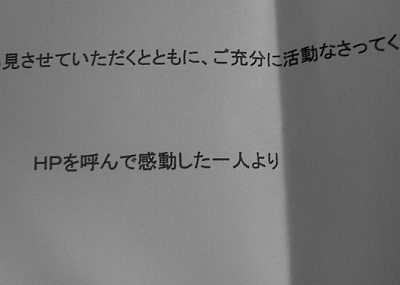 見させていただくとともに、ご充分に活動なさってく
HPを呼んで感動した一人より